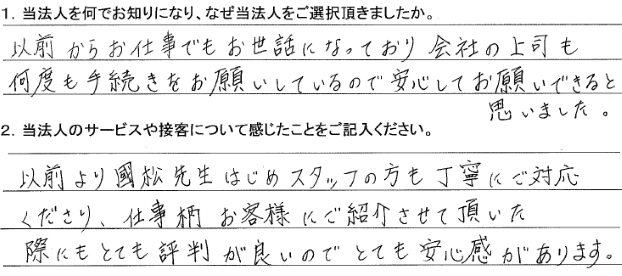 1. 当法人を何でお知りになり、なぜ当法人をご選択頂きましたか。
以前からお仕事でもお世話になっており 会社の上司も
何度も手続きをお願いしているので安心してお願いできると
思いました。
2. 当法人のサービスや接客について感じたことをご記入ください。
以前より國松先生はじめスタッフの方も丁寧にご対応
くださり、仕事柄 お客様にご紹介させて頂いた
際にもとても評判が良いのでとても安心感があります。